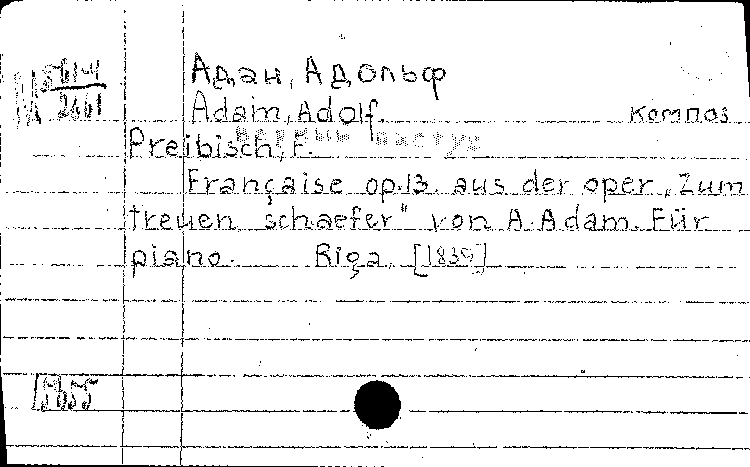 Адан, Адольф
М 61-4
2661
Adam, Adolf. Композ
Верный пастух
Preibisch, F.
Française op.13. aus der oper „Zum
treuen schaefer" von A. Adam. Für
piano. Riga, [1839]